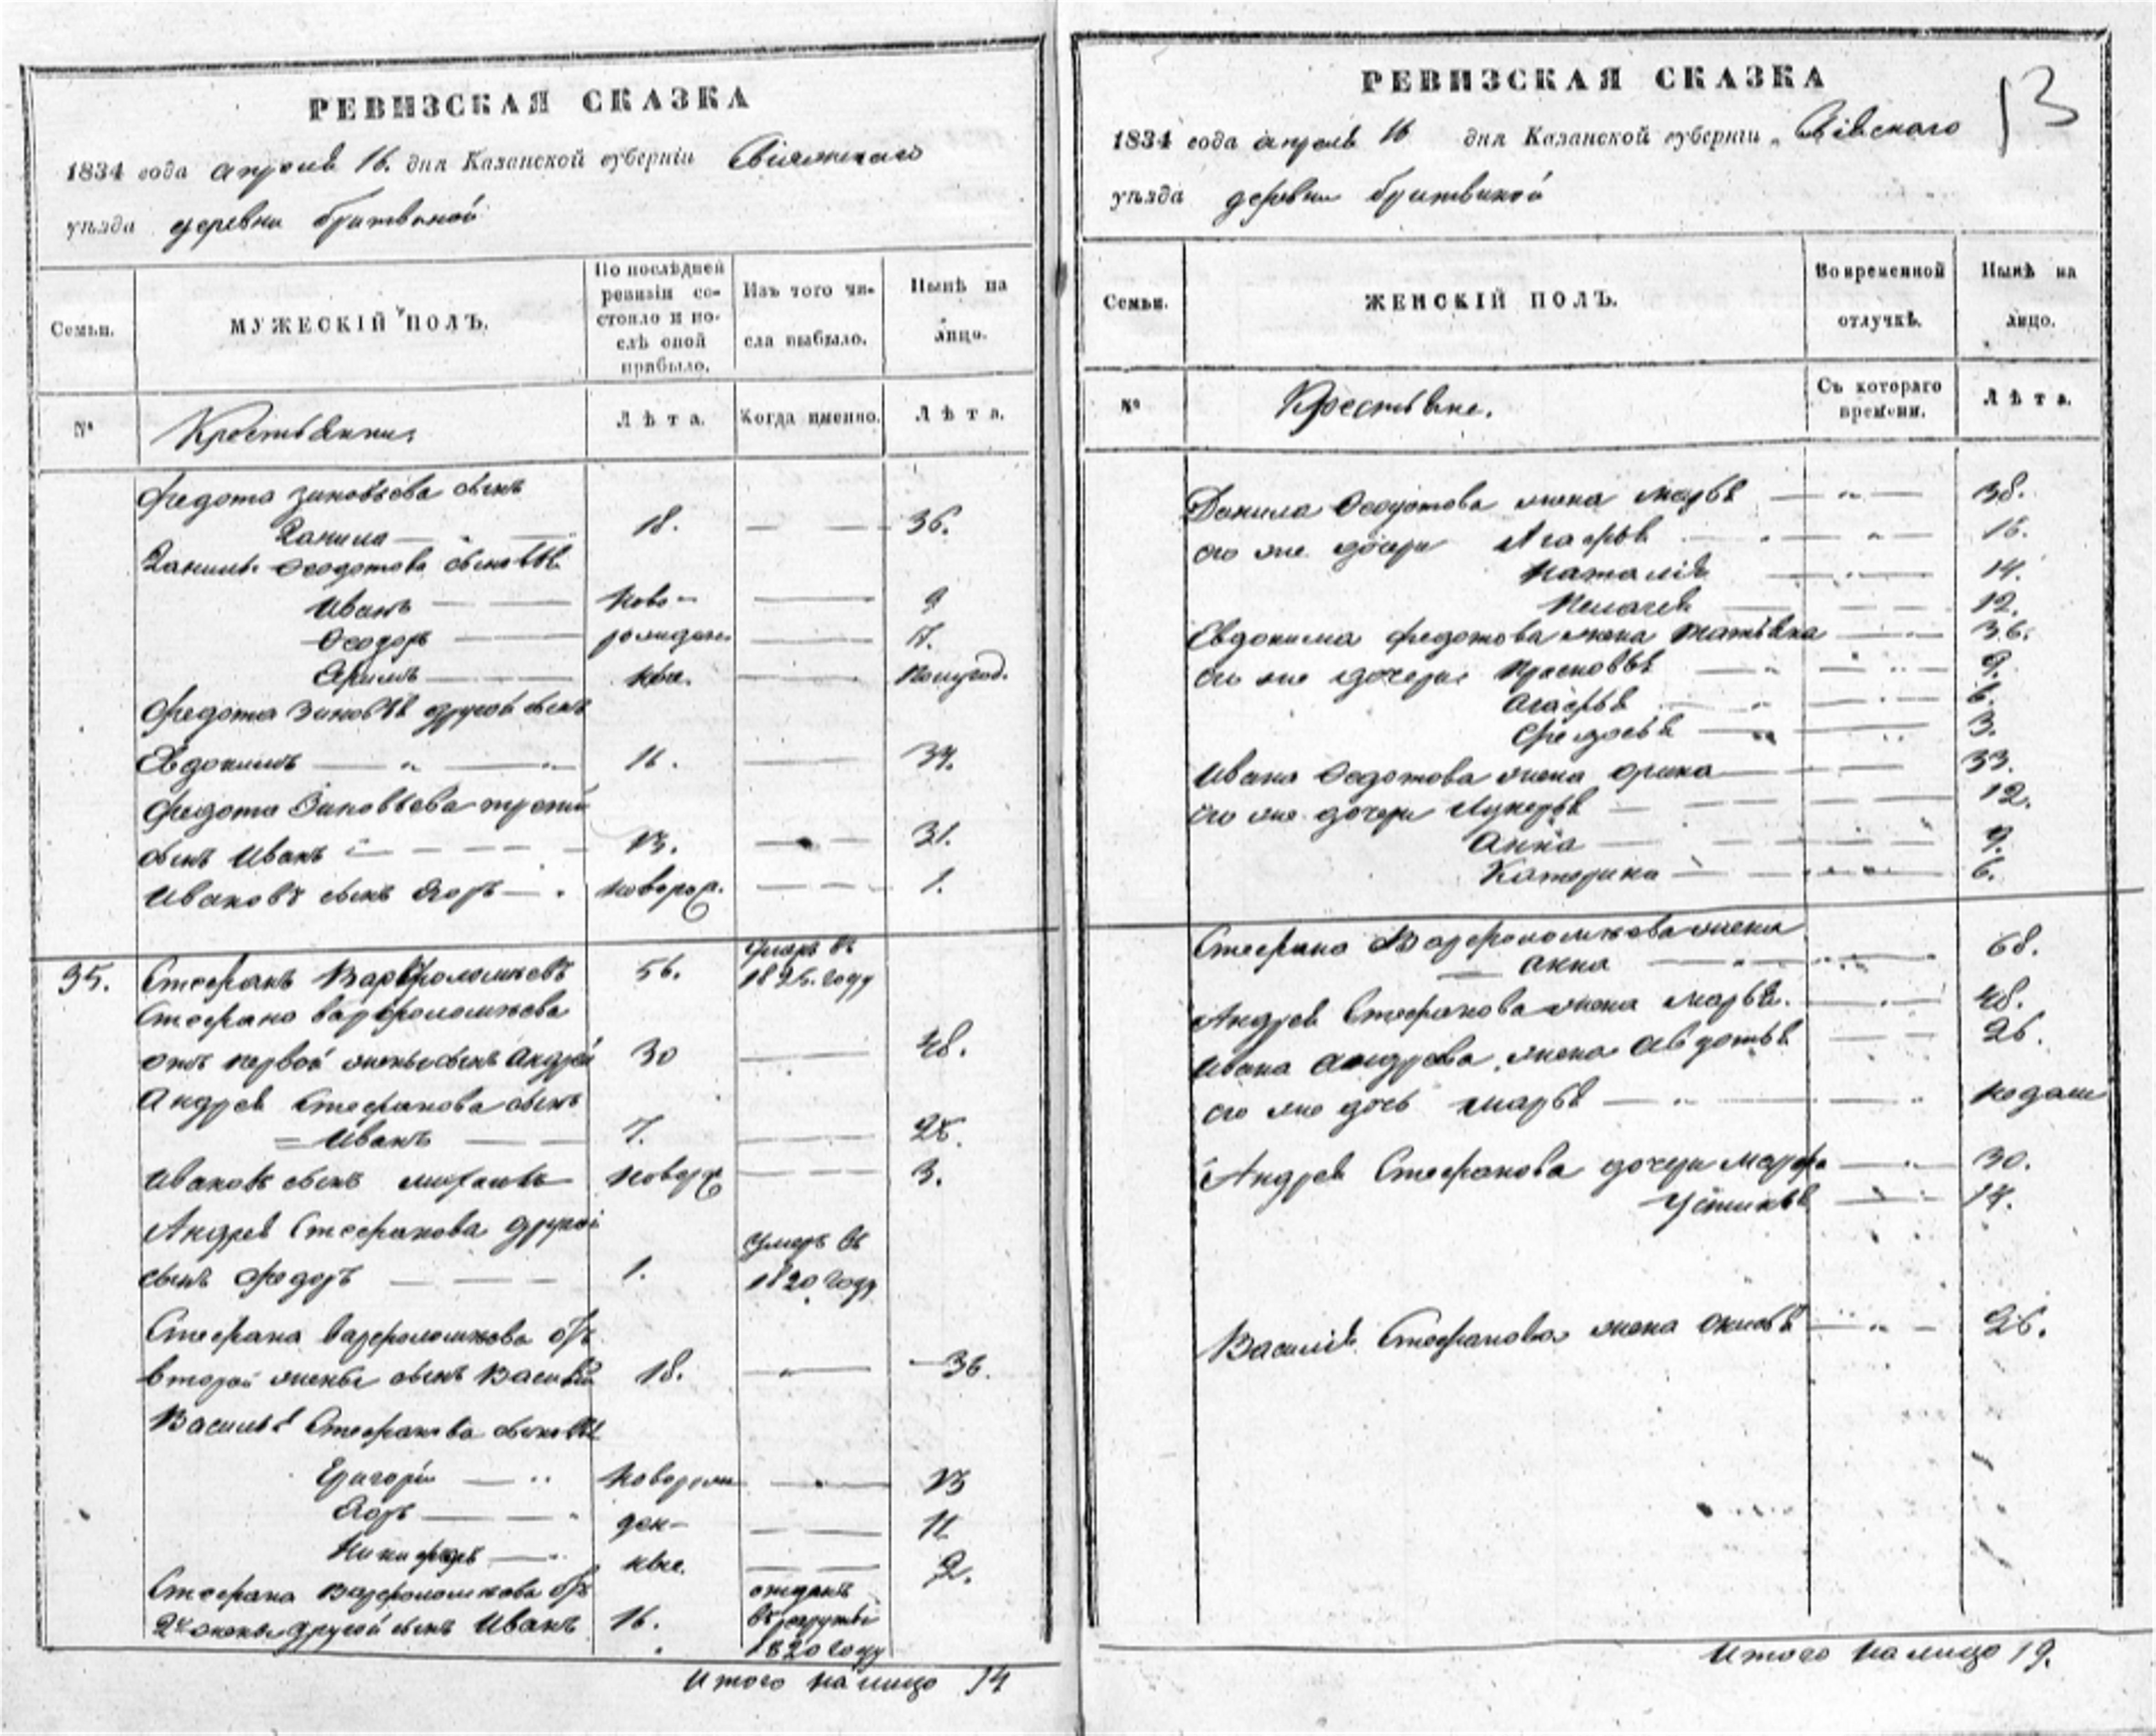 РЕВИЗСКАЯ СКАЗКА
1834 года апреля 16. дня Казанской губерніи Свіяжскаго
уѣзда деревни Бритвиной
Семьи.
МУЖЕСКІЙ ПОЛЪ.
По послѣдней ревизіи со-
стояло и по-
слѣ оной
прибыло.
Изъ того чи-
сла выбыло.
Нынѣ на
лицо.
№
Крестьянинъ
Лѣта.
Когда именно.
Лѣта.
Федота Зиновьева сынъ
Данила 18. 36.
Данилы Ѳеодотова сыновья
Иванъ ново- 9
Ѳеодоръ рожден 7.
Ефимъ ные. полугод.
Федота Зиновья другой сынъ
Евдокимъ 16. 34.
Федота Зиновьева третій
сынъ Иванъ 13. 31.
Ивановъ сынъ Егоръ новорож. 1.
35. Стефанъ Варфоломѣевъ 56. умеръ въ 1826. году
Стефана Варфоломѣева
отъ первой жены сынъ Андрей 30 48.
Андрея Стефанова сынъ
Иванъ 7. 25.
Ивановъ сынъ новорж 3.
Андрея Стефанова другой
сынъ Федоръ 1. умеръ въ 1820 году
Стефана Варфоломѣева отъ
второй жены сынъ Василій 18. 36.
Василья Стефанова сыновья
Григорій новорож 13
Егоръ ден- 11
Никифоръ ные. 2.
Стефана Варфоломѣева отъ
2й жены другой сынъ Иванъ 16. отданъ въ рекруты 1820 году
Итого на лицо 14
13
РЕВИЗСКАЯ СКАЗКА
1834 года апреля 16 дня Казанской губерніи
уѣзда деревни Бритвиной
Семьи.
ЖЕНСКІЙ ПОЛЪ.
Во временной
отлучкѣ.
Нынѣ на
лицо.
№
Крестьяне.
Съ котораго
времени.
Лѣта.
Данила Ѳеодотова жена Марья 38.
его же дочери Агафья 16.
Наталія 14.
Пелагея 12.
Евдокима Федотова жена Татьяна 36.
его же дочери Прасковья 9.
Агафья 6.
Федосья 3.
Ивана Ѳедотова жена Орина 33.
его же дочери Лукерья 12.
Анна 9.
Катерина 6.
Стефана Варфоломѣева жена
Анна 68.
Андрея Стефанова жена Марья. 48.
Ивана Андреева жена Авдотья 26.
его же дочь Марья недели
Андрея Стефанова дочери Марфа 30.
Устинья 14.
Василія Стефанова жена 36.
Итого на лицо 19.